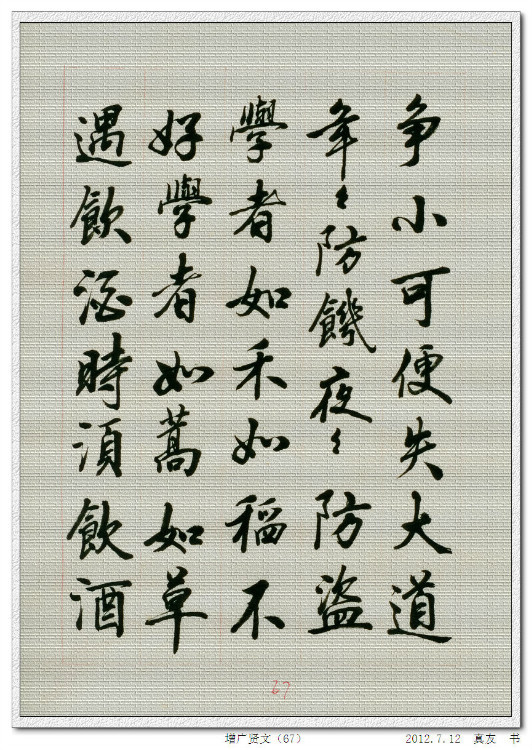 争小可便失大道
年々防饑夜々防盜
學者如禾如稻不
好學者如蒿如草
遇飲酒時須飲酒
27
增广贤文（67）
2012.7.12 真友 书